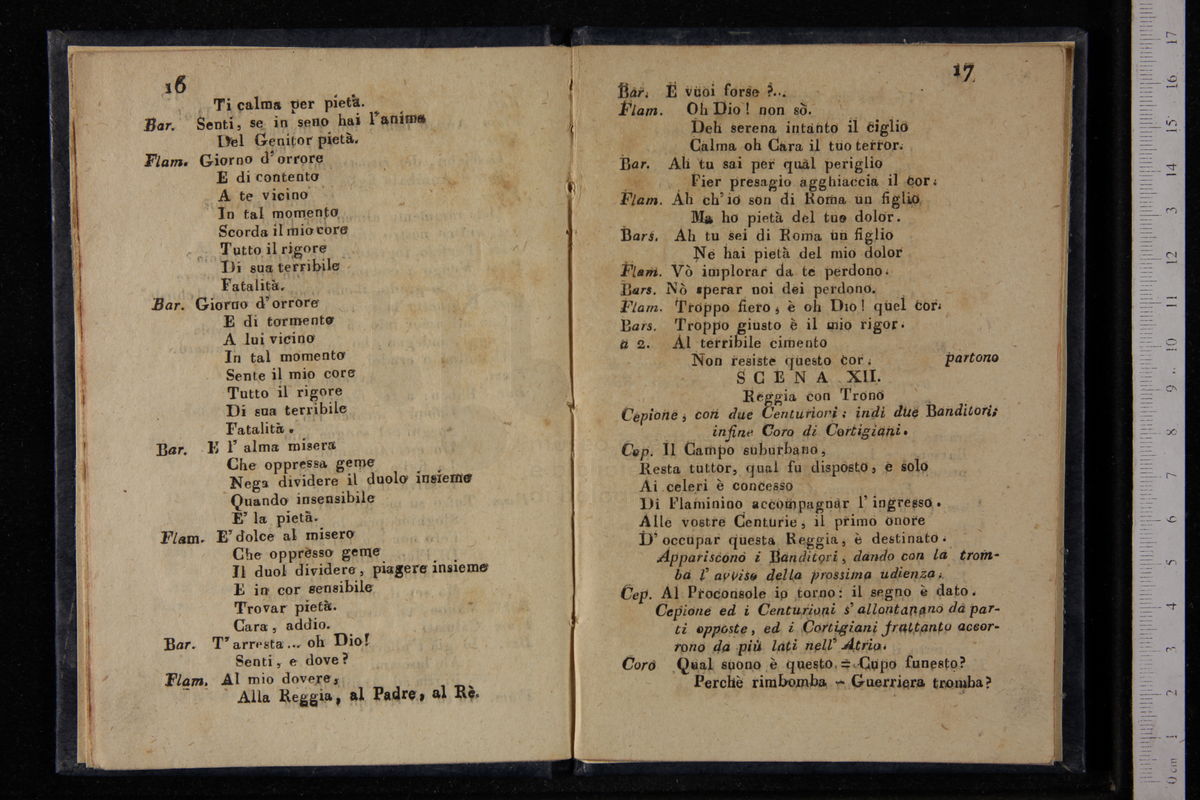 16
Ti calma per pietà.
Bar. Senti, se in seno hai l'anima
Del Genitor pietà.
Flam. Giorno d'orrore
E di contento
A te vicino
In tal momento
Scorda il mio core
Tutto il rigore
Di sua terribile
Fatalità.
Bar. Giorno d'orrore
E di tormento
A lui vicino
In tal momento
Sente il mio core
Tutto il rigore
Di sua terribile
Fatalità.
Bar. E l' alma misera
Che oppressa geme
Nega dividere il duolo insieme
Quando insensibile
E' la pietà.
Flam. E' dolce al misero
Che oppresso geme
Il duol dividere, piagere insieme
E in cor sensibile
Trovar pietà.
Cara, addio.
Bar. T' arresta... oh Dio!
Senti, e dove?
Flam. Al mio dovere,
Alla Reggia, al Padre, al Rè.
17
Bar. E vuoi forse ?...
Flam. Oh Dio! non sò.
Deh serena intanto il ciglio
Calma oh Cara il tuo terror.
Bar. Ah tu sai per qual periglio
Fier presagio agghiaccia il cor.
Flam. Ah ch'io son di Roma un figlio
Ma ho pietà del tuo dolor.
Bars. Ah tu sei di Roma un figlio
Ne hai pietà del mio dolor
Flam. Vò implorar da te perdono.
Bars. Nò sperar noi dei perdono.
Flam. Troppo fiero, è oh Dio! quel cor.
Bars. Troppo giusto è il mio rigor.
a 2. Al terribile cimento
Non resiste questo cor. partono
SCENA XII.
Reggia con Trono
Cepione, con due Centurioni: indi due Banditori;
infine Coro di Cortigiani.
Cep. Il Campo suburbano,
Resta tuttor, qual fu disposto, e solo
Ai celeri è concesso
Di Flaminino accompagnar l' ingresso.
Alle vostre Centurie, il primo onore
D' occupar questa Reggia, è destinato.
Appariscono i Banditori, dando con la trom-
ba l' avviso della prossima udienza.
Cep. Al Proconsole io torno: il segno è dato.
Cepione ed i Centurioni s' allontanano da par-
ti opposte, ed i Cortigiani frattanto accor-
rono da più lati nell' Atrio.
Coro Qual suono è questo = Cupo funesto?
Perchè rimbomba - Guerriera tromba?
0 cm 1 2 3 4 5 6 7 8 9 10 11 12 13 14 15 16 17